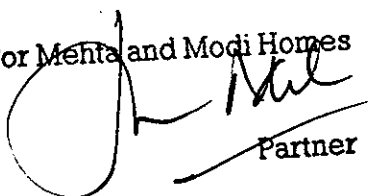 or Mehta and Modi Homes
Partner